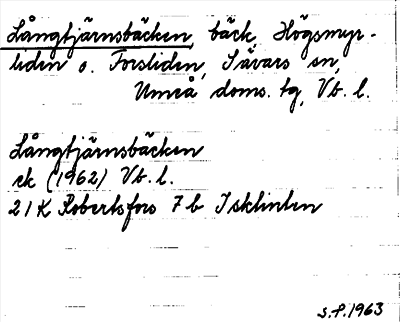 Långtjärnsbäcken, bäck, Högsmyr-
liden o. Forsliden, Sävars sn,
Umeå doms. tg, Vb. l.
Långtjärnsbäcken
ek (1962) Vb. l.
21 K Robertsfors 7 b Isklinten
S.P. 1963